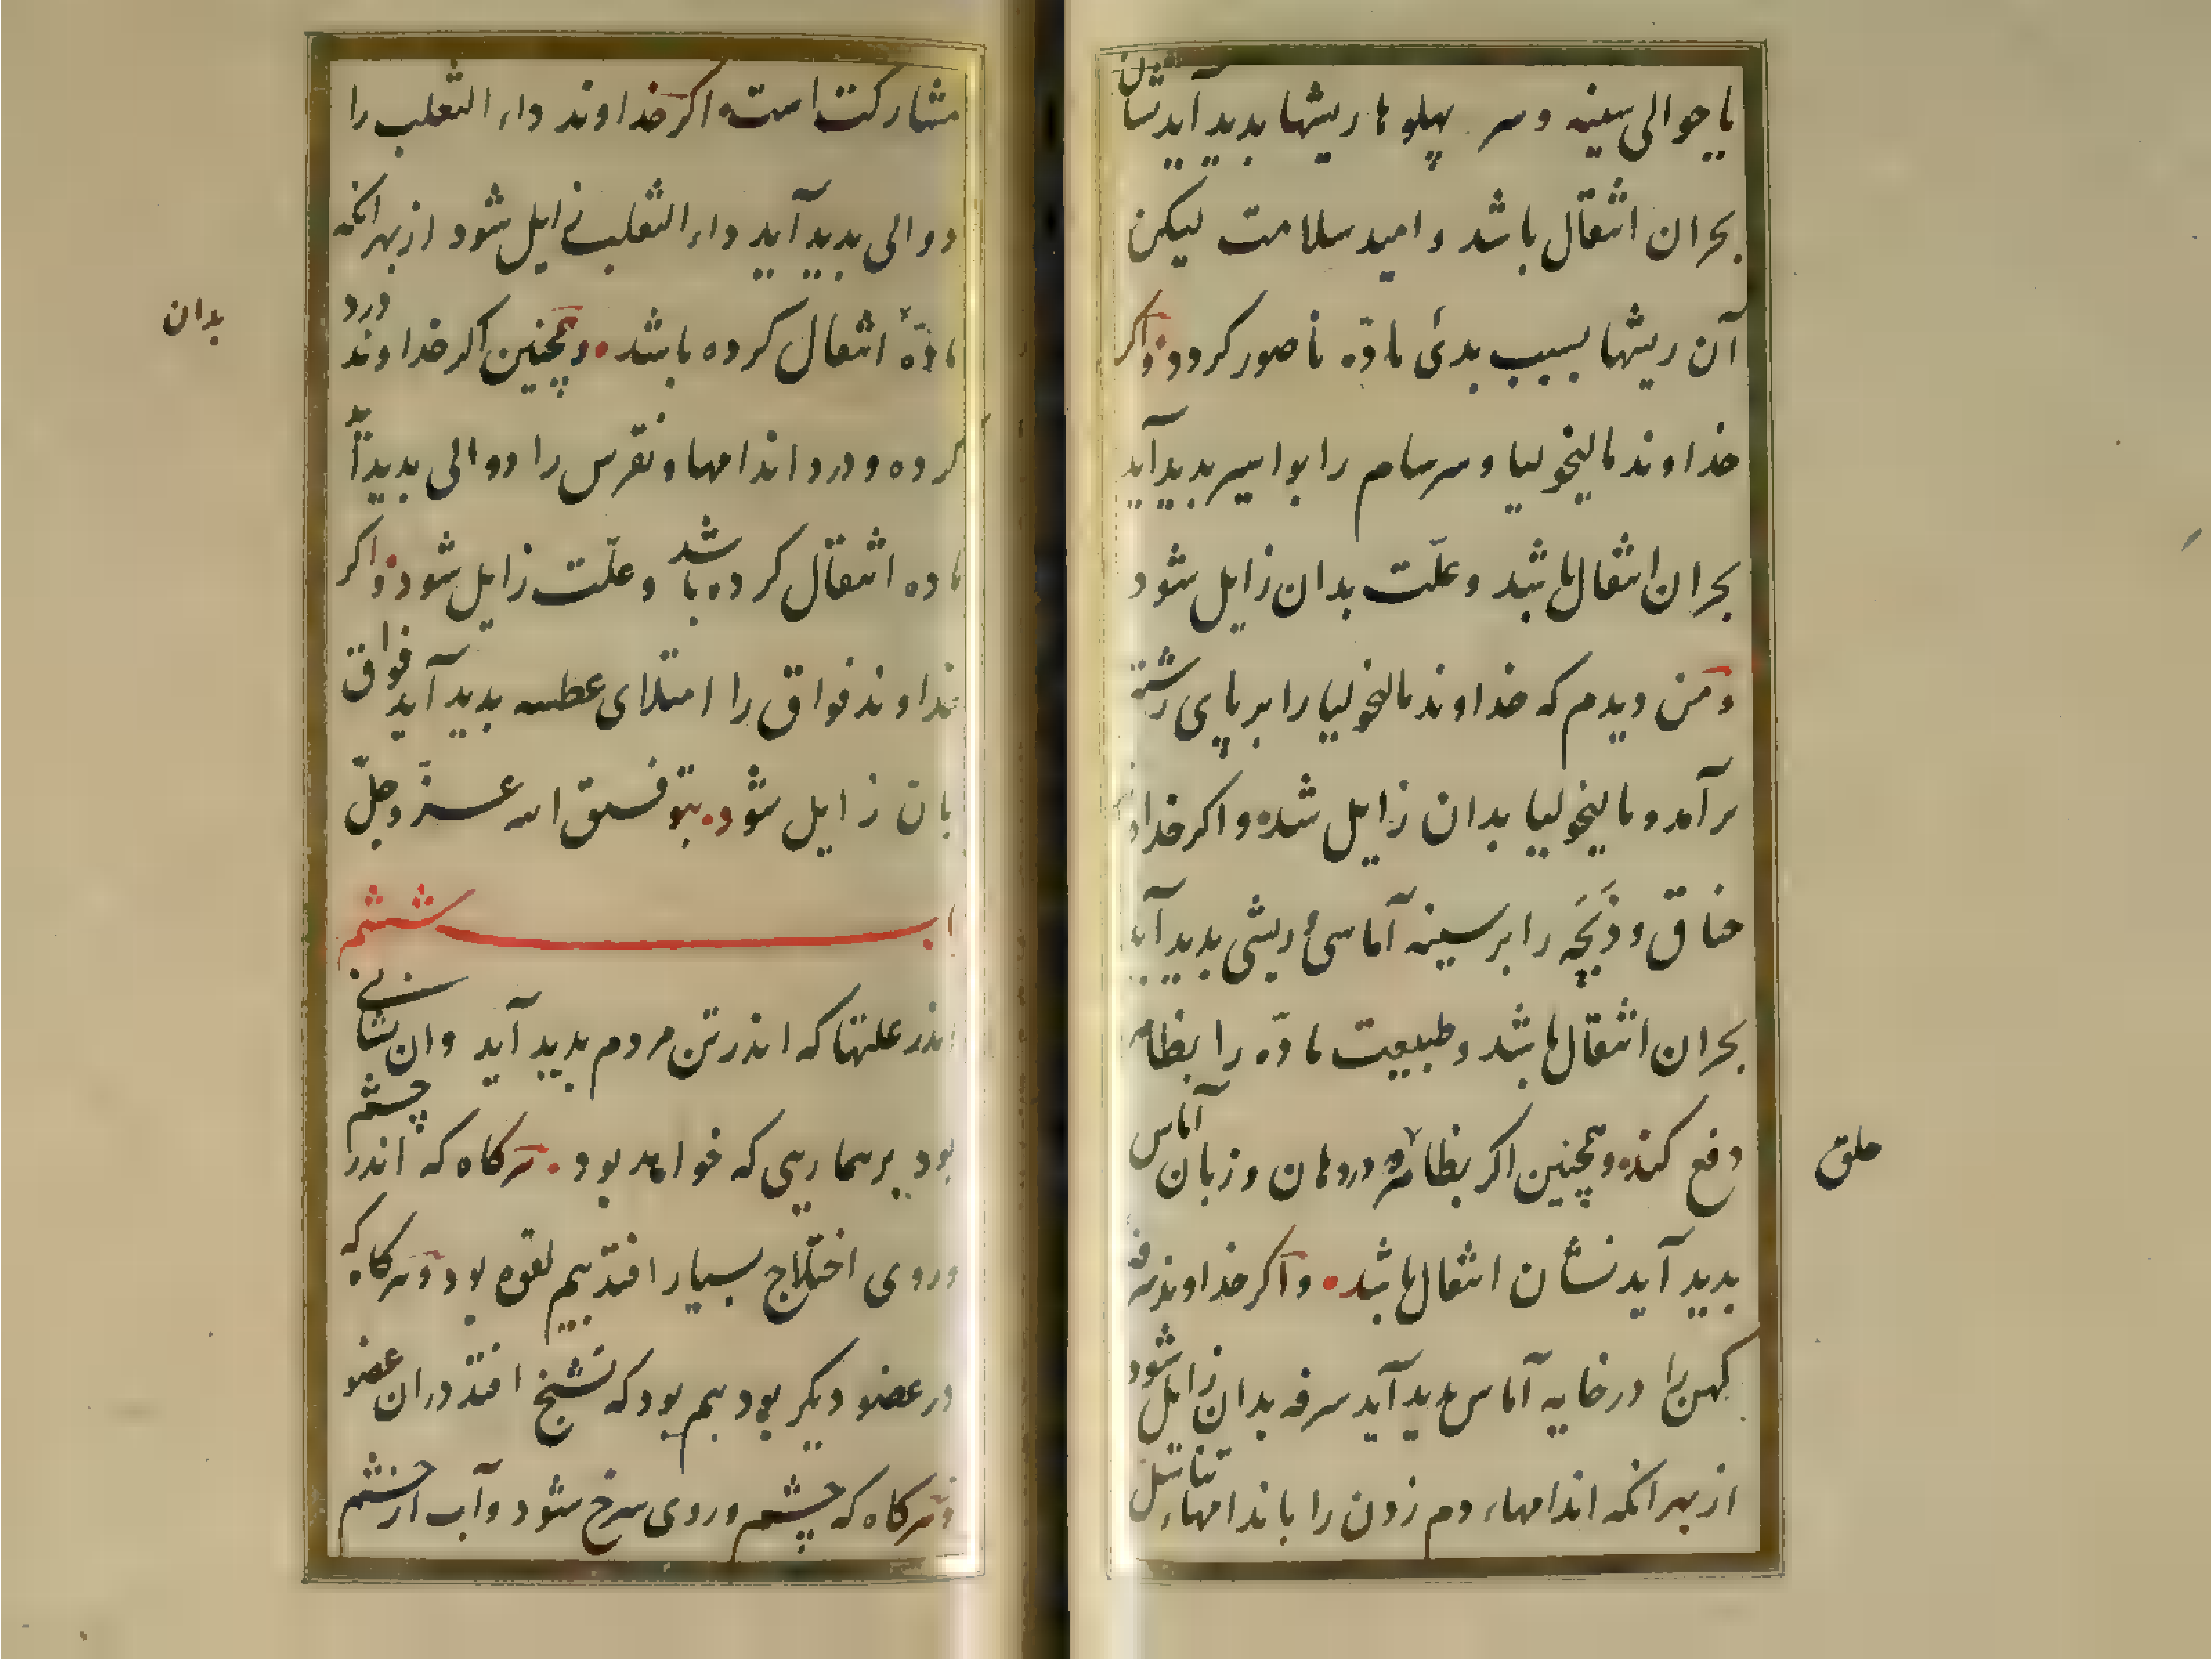 یا حوالی سینه و سر پهلوها ریشها بدید آید نشان
بحران انتقال باشد و امید سلامت لیکن
آن ریشها بسبب بدیٔ مادّه ناصور کردد و اکر
خداوند مالیخولیا و سرسام را بواسیر بدید آید
بحران انتقال باشد و علّت بدان زایل شود
و من دیدم که خداوند مالیخولیا را بر پای رشته
برآمد و مالیخولیا بدان زایل شد و اکر خداوند
خناق و ذبحه را بر سینه آماسیٔ ریشی بدید آید
بحران انتقال باشد و طبیعت مادّه را بظاهر
دفع کند و همچنین اکر بظاهر در دهان و زبان آماس
حلق
بدید آید نشان انتقال باشد و اکر خداوند سرفه
کهن را در خایه آماس بدید آید سرفه بدان زایل شود
از بهر انکه اندامهاء دم زدن را با اندامهاء تناسل
مشارکت است اکر خداوند داء الثعلب را
دوالی بدید آید داء الثعلب زایل شود از بهر انکه
مادّه انتقال کرده باشد و همچنین اکر خداوند درد
بدان
کرده و درد اندامها و نقرس را دوالی بدید آید
ماده انتقال کرده باشد و علّت زایل شود و اکر
خداوند فواق را امتلای عطسه بدید آید فواق
بان زایل شود بتوفیق الله عزّ وجلّ
باب ششم
اندر علتها که اندر تن مردم بدید آید و ان نشانی
بود بر بیماریی که خواهد بود هرکاه که اندر چشم
و روی اختلاج بسیار افتد بیم لقوه بود و هرکاه که
در عضو دیکر بود بیم بود که تشنج افتد در ان عضو
و هرکاه که چشم و روی سرخ شود و آب از چشم